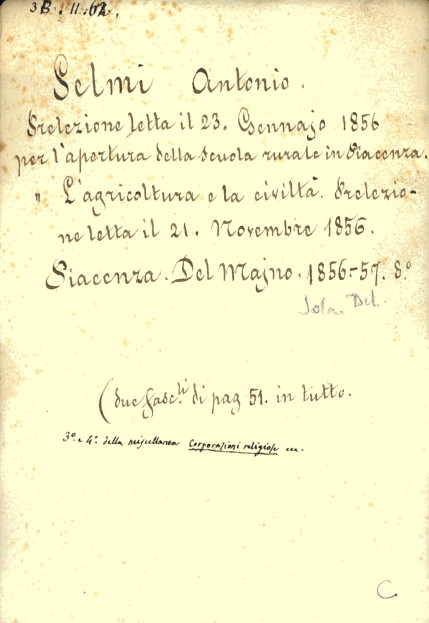 3B. 11. 62.
Selmi Antonio.
Prelezione letta il 23. Gennajo 1856
per l'apertura della scuola rurale in Piacenza.
" L'agricoltura e la civiltà. Prelezio-
ne letta il 21. Novembre 1856.
Piacenza. Del Majno. 1856-57. 8.°
(due fasc.li di pag 51. in tutto.
3.° e 4.° della miscellanea Corporazioni religiose
C